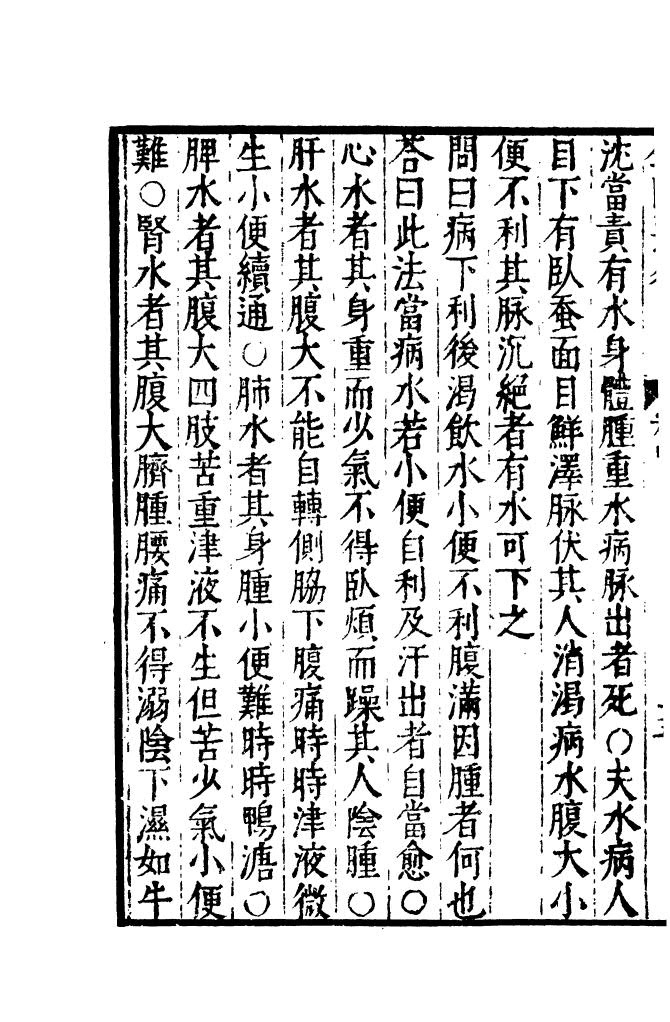 沈當責有水身體腫重水病脉出者死○夫水病人
目下有臥蚕面目鮮澤脉伏其人消渴病水腹大小
便不利其脉沉絶者有水可下之
問曰病下利後渴飲水小便不利腹滿因腫者何也
荅曰此法當病水若小便自利及汗出者自當愈○
心水者其身重而少氣不得臥煩而躁其人陰腫○
肝水者其腹大不能自轉側脇下腹痛時時津液微
生小便續通○肺水者其身腫小便難時時鴨溏○
脾水者其腹大四肢苦重津液不生但苦少氣小便
難○腎水者其腹大臍腫腰痛不得溺陰下濕如牛